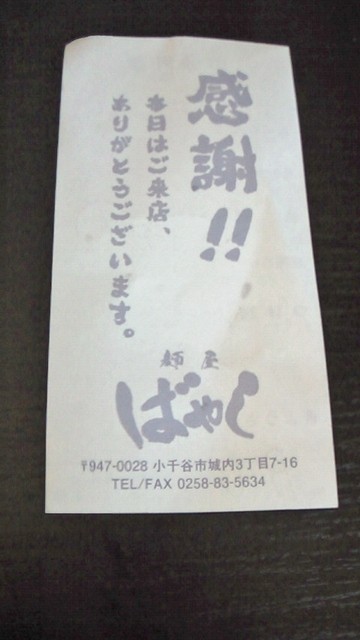 感謝!!
本日はご来店、
ありがとうございます。
麺屋
ばやし
〒947-0028 小千谷市城内3丁目7-16
TEL/FAX 0258-83-5634